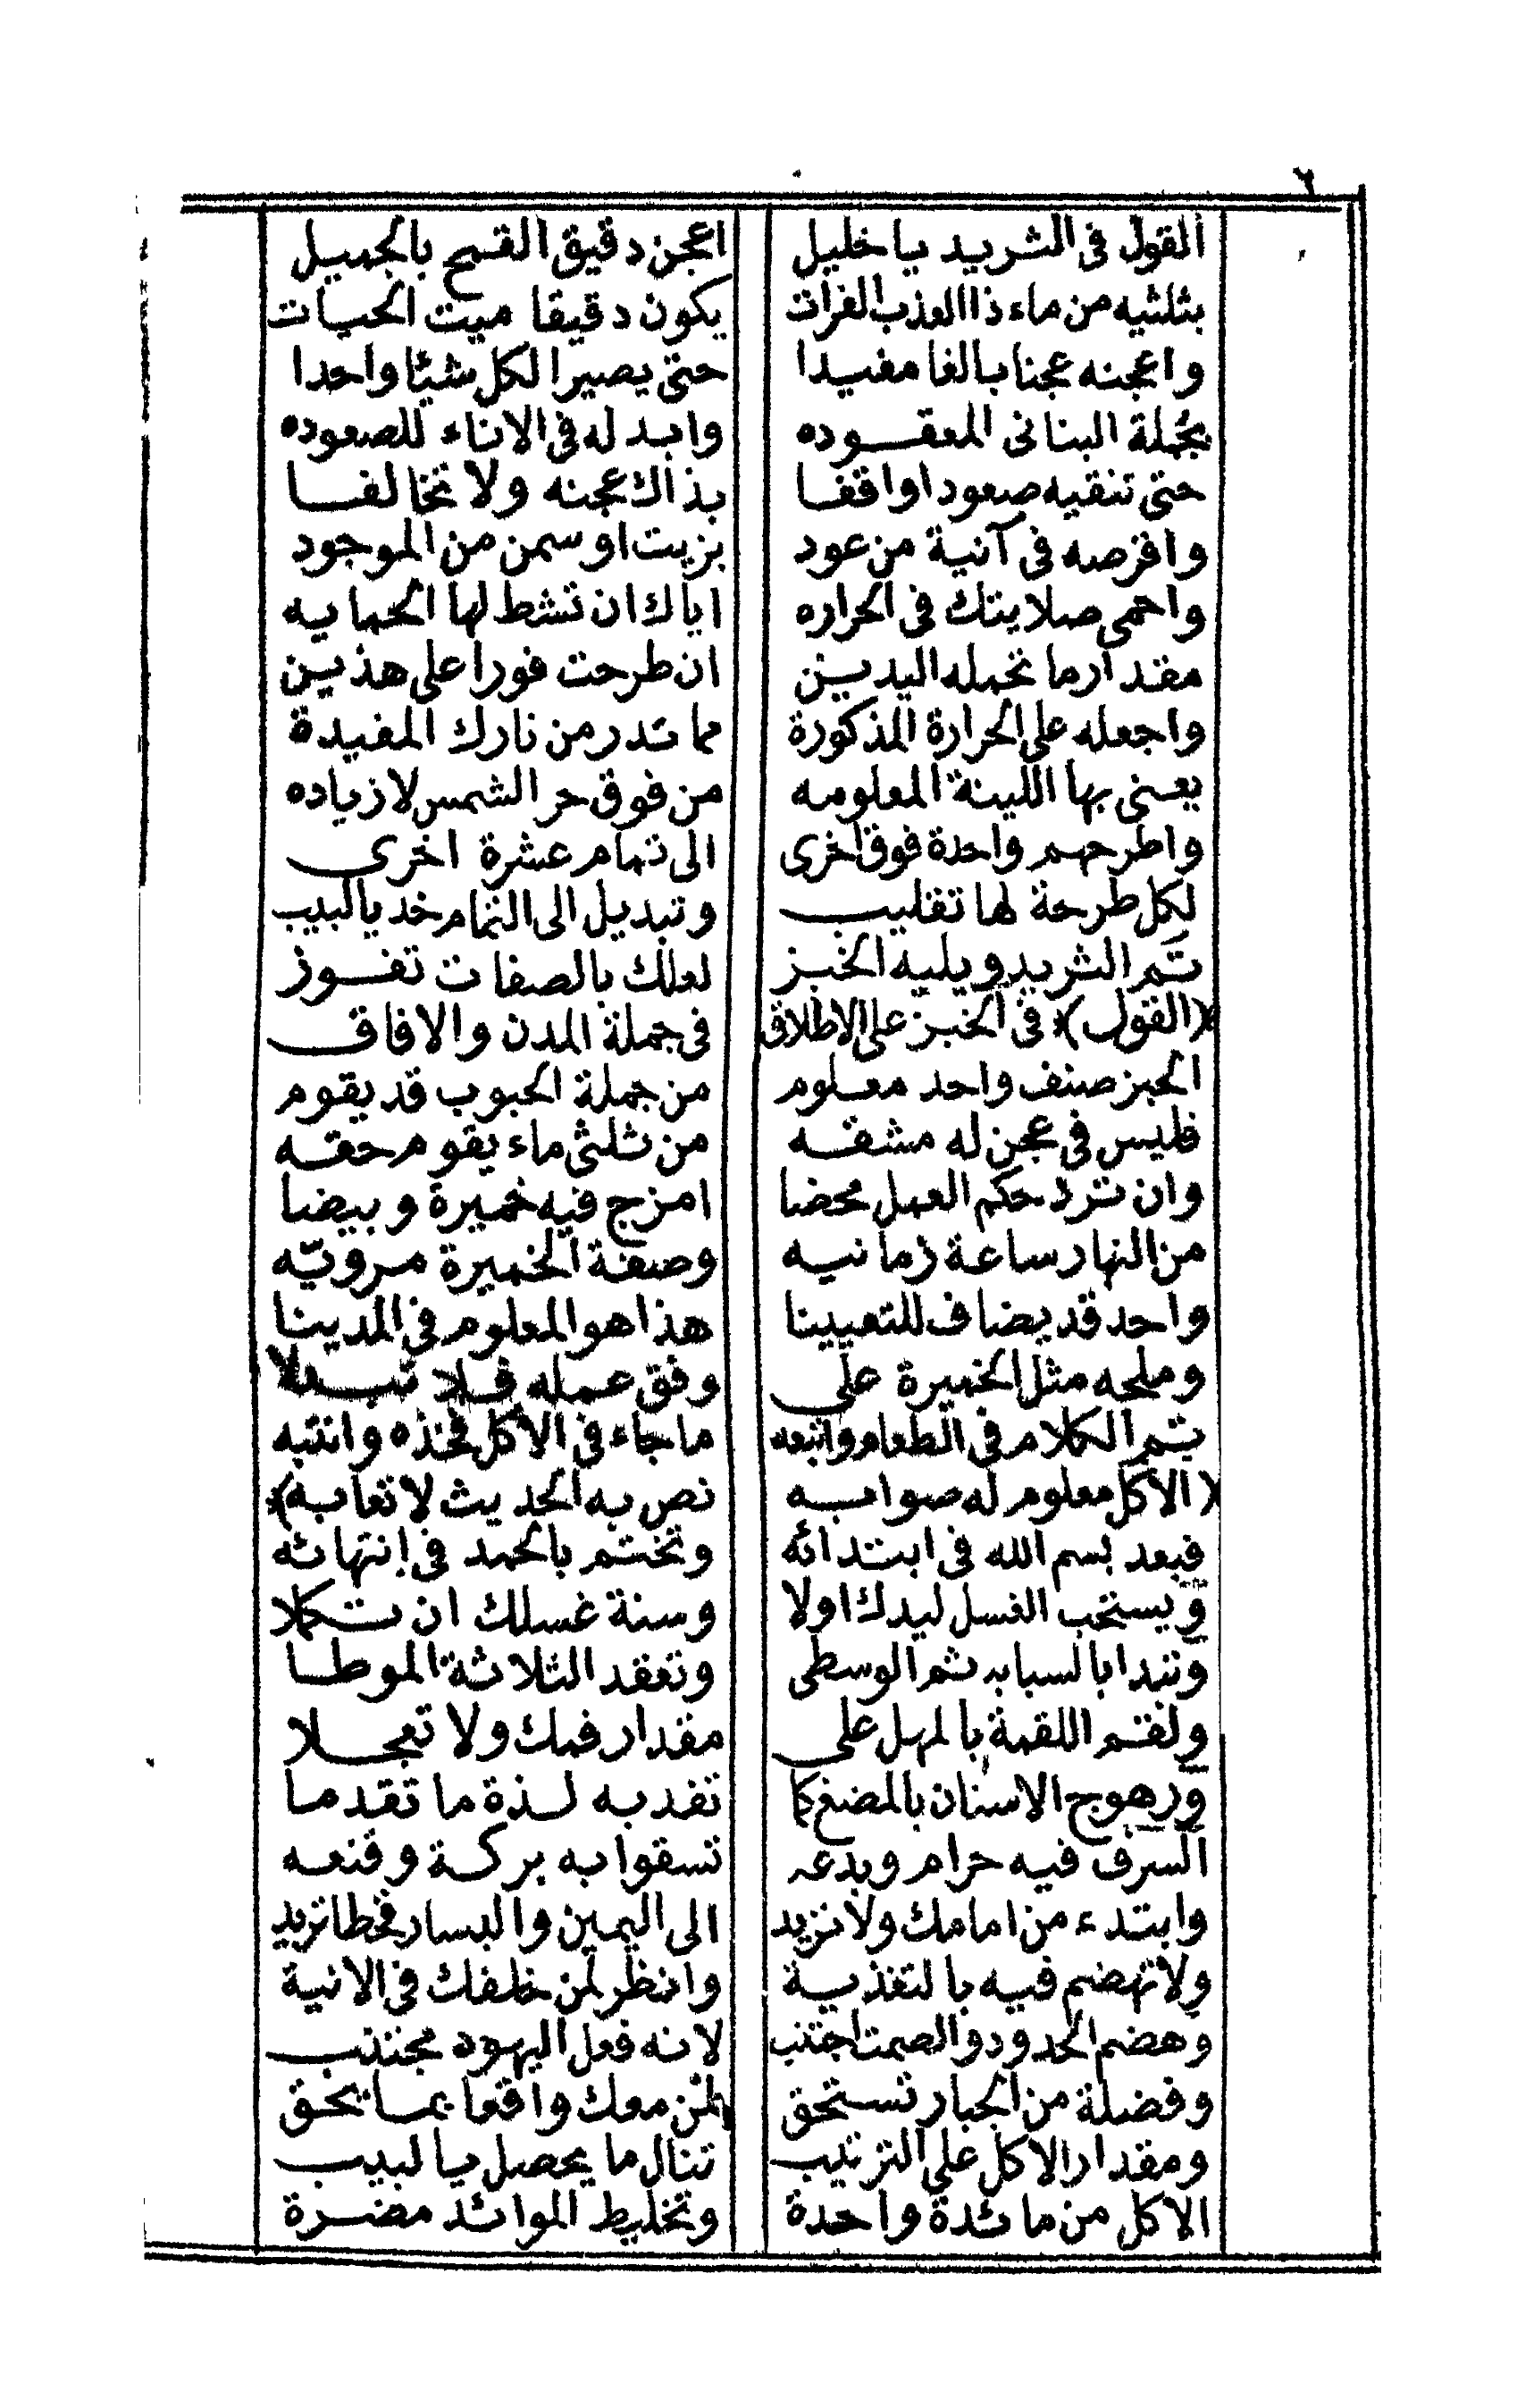 ٦
القول فى الثريد يا خليل اعجن دقيق القمح بالجميل
بثلثيه من ماء ذا العذب الفرات يكون دقيقا ميت الحيات
واعجنه عجنا بالغا مفيدا حتى يصير الكل شيئا واحدا
بجملة البنانى المعقوده وابد له فى الاناء للصعوده
حتى تنقيه صعودا واقفا بذاك عجنه ولا تخالفا
وافرصه فى آنية من عود بزيت او سمن من الموجود
واحمى صلايتك فى الحراره اياك ان تشط لها الحمايه
مقدار ما تحمله اليدين ان طرحت فورا على هذين
واجعله على الحرارة المذكورة مما تدر من نارك المفيدة
يعنى بها اللينة المعلومه من فوق حر الشمس لا زياده
واطرحهم واحدة فوق اخرى الى تمام عشرة اخرى
لكل طرحة لها تقليب وتبديل الى التمام خد يالبيب
تَم الثريد ويليه الخبز لعلك بالصفات تفوز
﴿القول﴾ فى الخبز على الاطلاق فى جملة المدن والافاق
الخبز صنف واحد معلوم من جملة الحبوب قد يقوم
فليس فى عجن له مشقه من ثلثى ماء يقوم حقه
وان ترد حكم العمل محضا امزج فيه خميرة وبيضا
من النهار ساعة زمانيه وصفة الخميرة مرويّه
واحد قد يضاف للتعيينا هذا هو المعلوم فى المدينا
وملحه مثل الخميرة على وفق عمله فلا
يتم الكلام فى الطعام واتبعه ما جاء فى الاكل فخذه وانتبه
﴿الاكل معلوم له صوابه نص به الحديث لا تعابه﴾
فبعد بسم الله فى ابتدائه وتختم بالحمد فى إنتهائه
ويستحب الغسل ليدك اولا وسنة غسلك ان تكملا
وتبدا بالسبابه ثم الوسطى وتعقد الثلاثة الموطا
ولقم اللقمة بالمهل على مقدار فمك ولا تعجلا
ورهوج الاسنان بالمضغ كما تفد به لذة ما تقدما
السرف فيه حرام وبدعه تسقوا به بركة وقنعه
وابتدء من امامك ولا تزيد الى اليمين واليسار فخطا تريد
ولا تهضم فيه بالتغذية وانظر لمن خلفك فى الانية
وهضم الحدود والصمت اجتنب لانه فعل اليهود مجتنب
وفضلة من الجبار تستحق لمن معك واقعا بما يحق
ومقدار الاكل على الترتيب تنال ما يحصل يا لبيب
الاكل من مائدة واحدة وتخليط الموائد مضرة